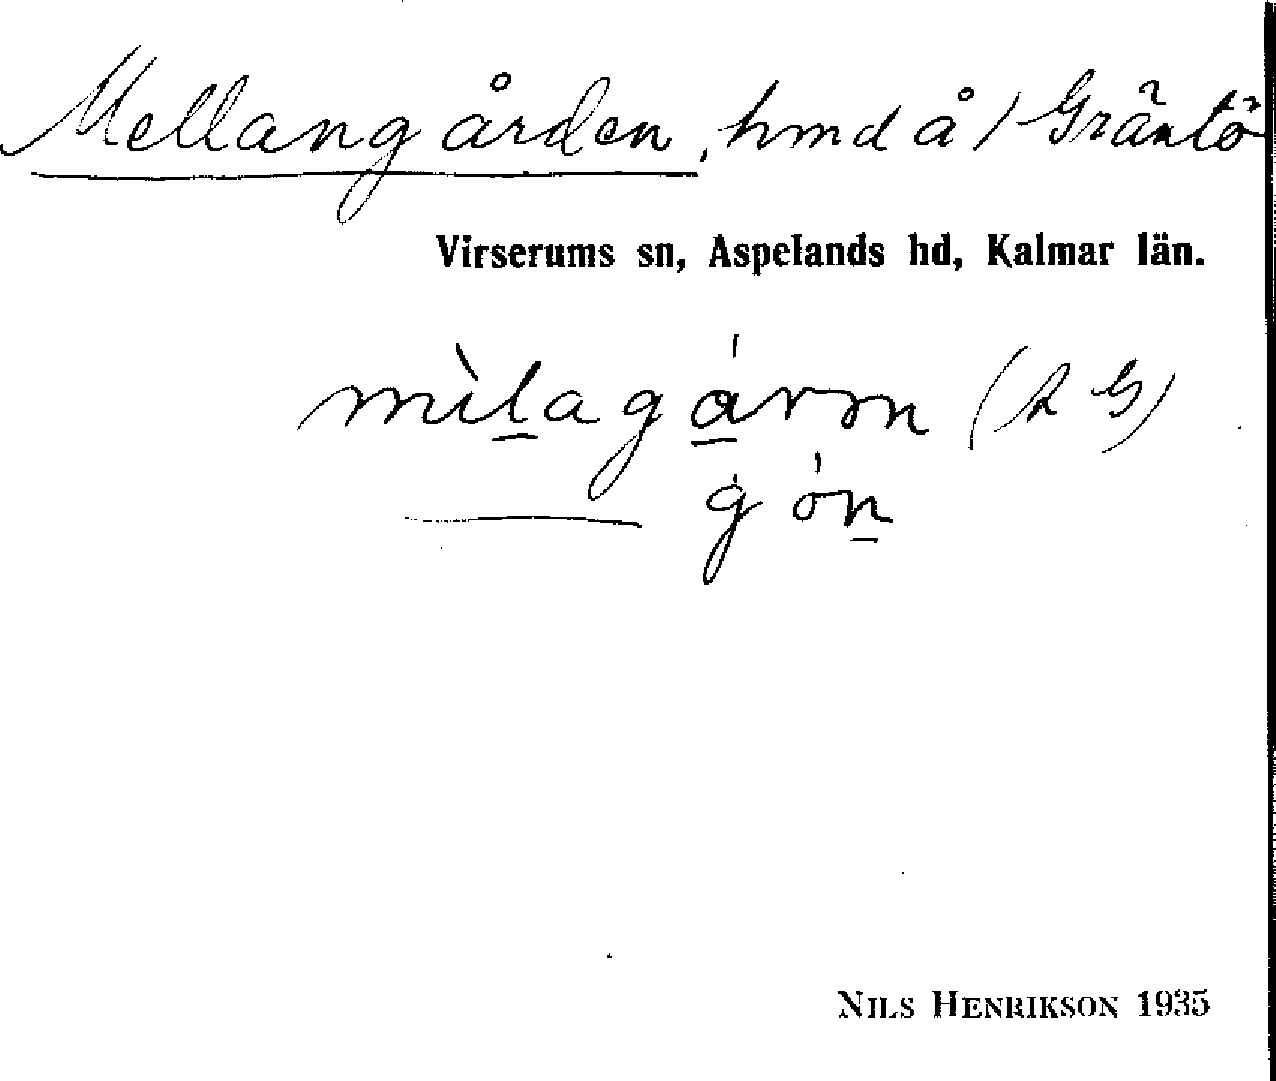 Mellangården, hmd å / Gräntö
Virserums sn, Aspelands hd, Kalmar län.
mìlagárən (A G)
— gón
NILS HENRIKSON 1935